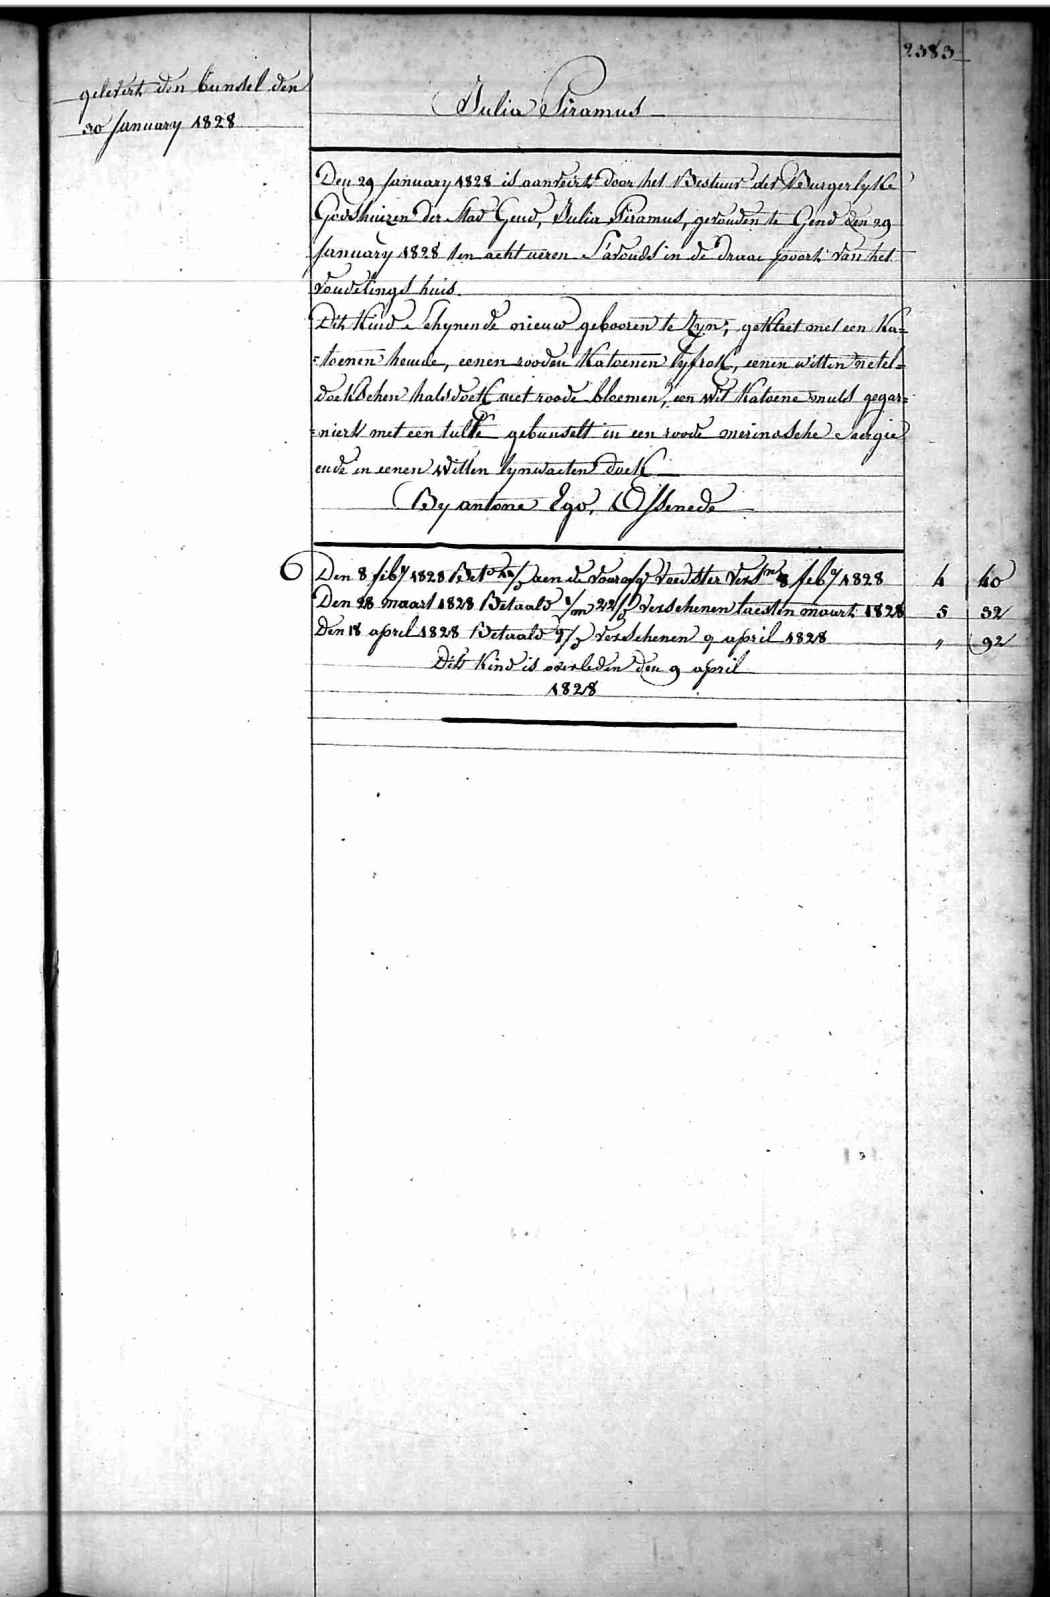 2383
gelevert den bunsel den
30 January 1828
Julia Piramus
Den 29 January 1828 is aanveirt door het Bestuur der Burgerlyke
Godshuizen der Stad Gend, Julia Piramus, gevonden te Gend den 29
January 1828 ten acht uren S'avonds in de draai poort van het
vondelings huis.
Dit Kind Schynende nieuw gebooren te Zyn, gekleet met een Ka=
=toenen hemde, eenen rooden Katoenen lyfrok, eenen witten netel=
doekschen halsdoek met roode bloemen, een wit Katoene muts gegar=
=niert met een tulle gebunselt in een roode merinosche Sergie
ende in eenen witten lynwaeten doek
By antone Ego, Assenede
6 Den 8 feb.y 1828 Bet.d aen de voedster vers.n 8 feb.y 1828 4 40
Den 28 maart 1828 Betaald 1/m 22/d verschenen laesten maart 1828 5 32
Den 18 april 1828 Betaald 9/d verschenen 9 april 1828 " 92
Dit Kind is overleden den 9 april
1828